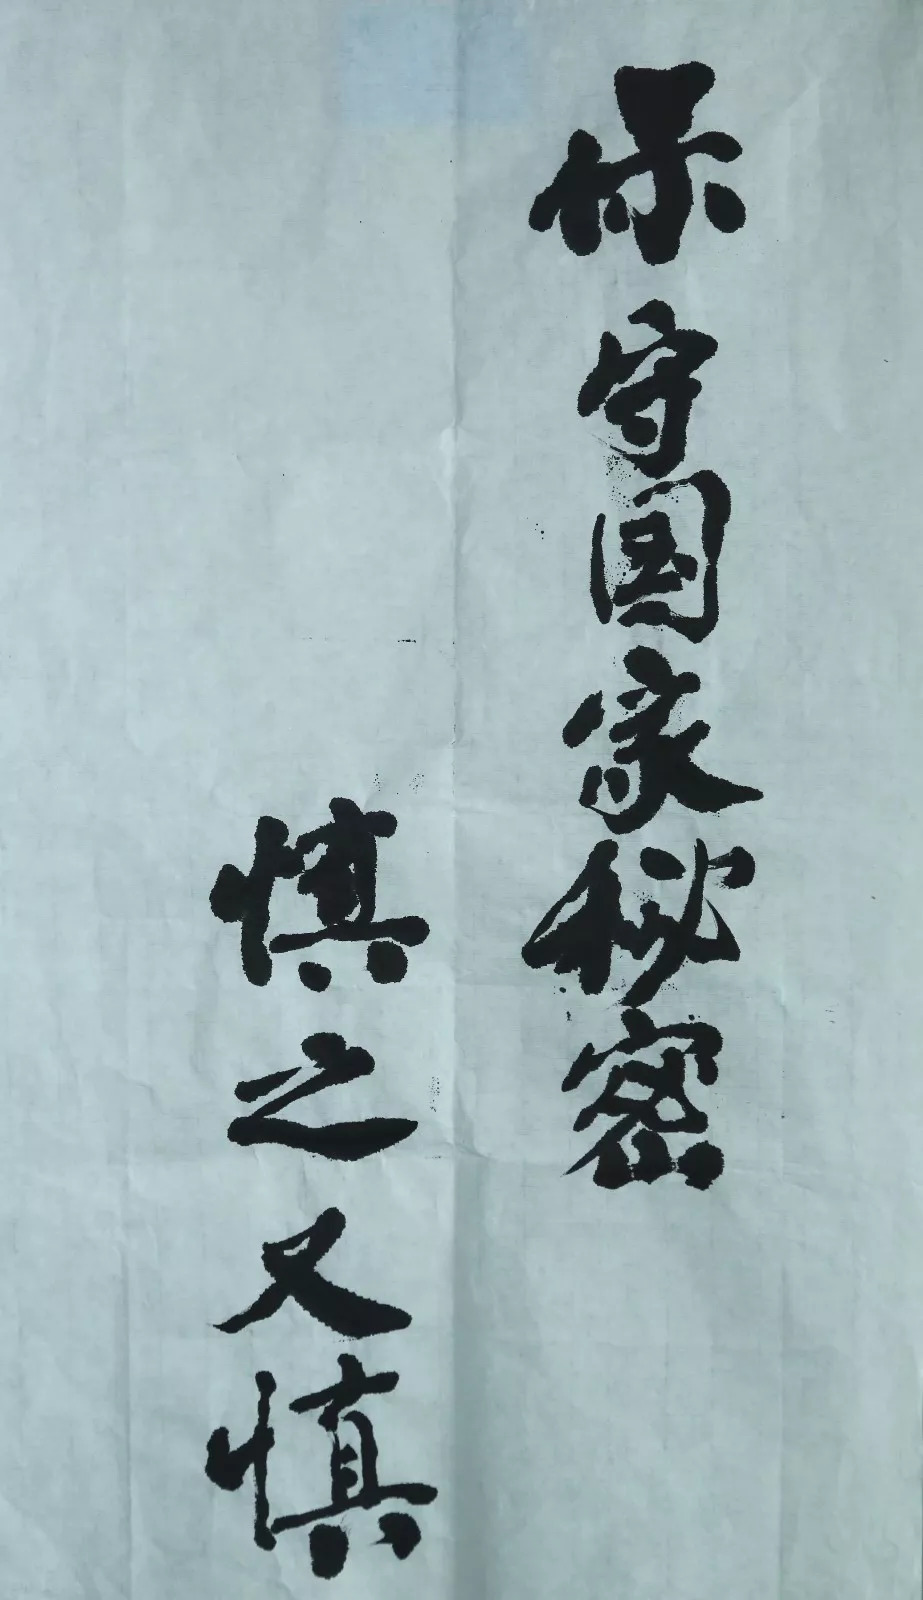 保守国家秘密
慎之又慎